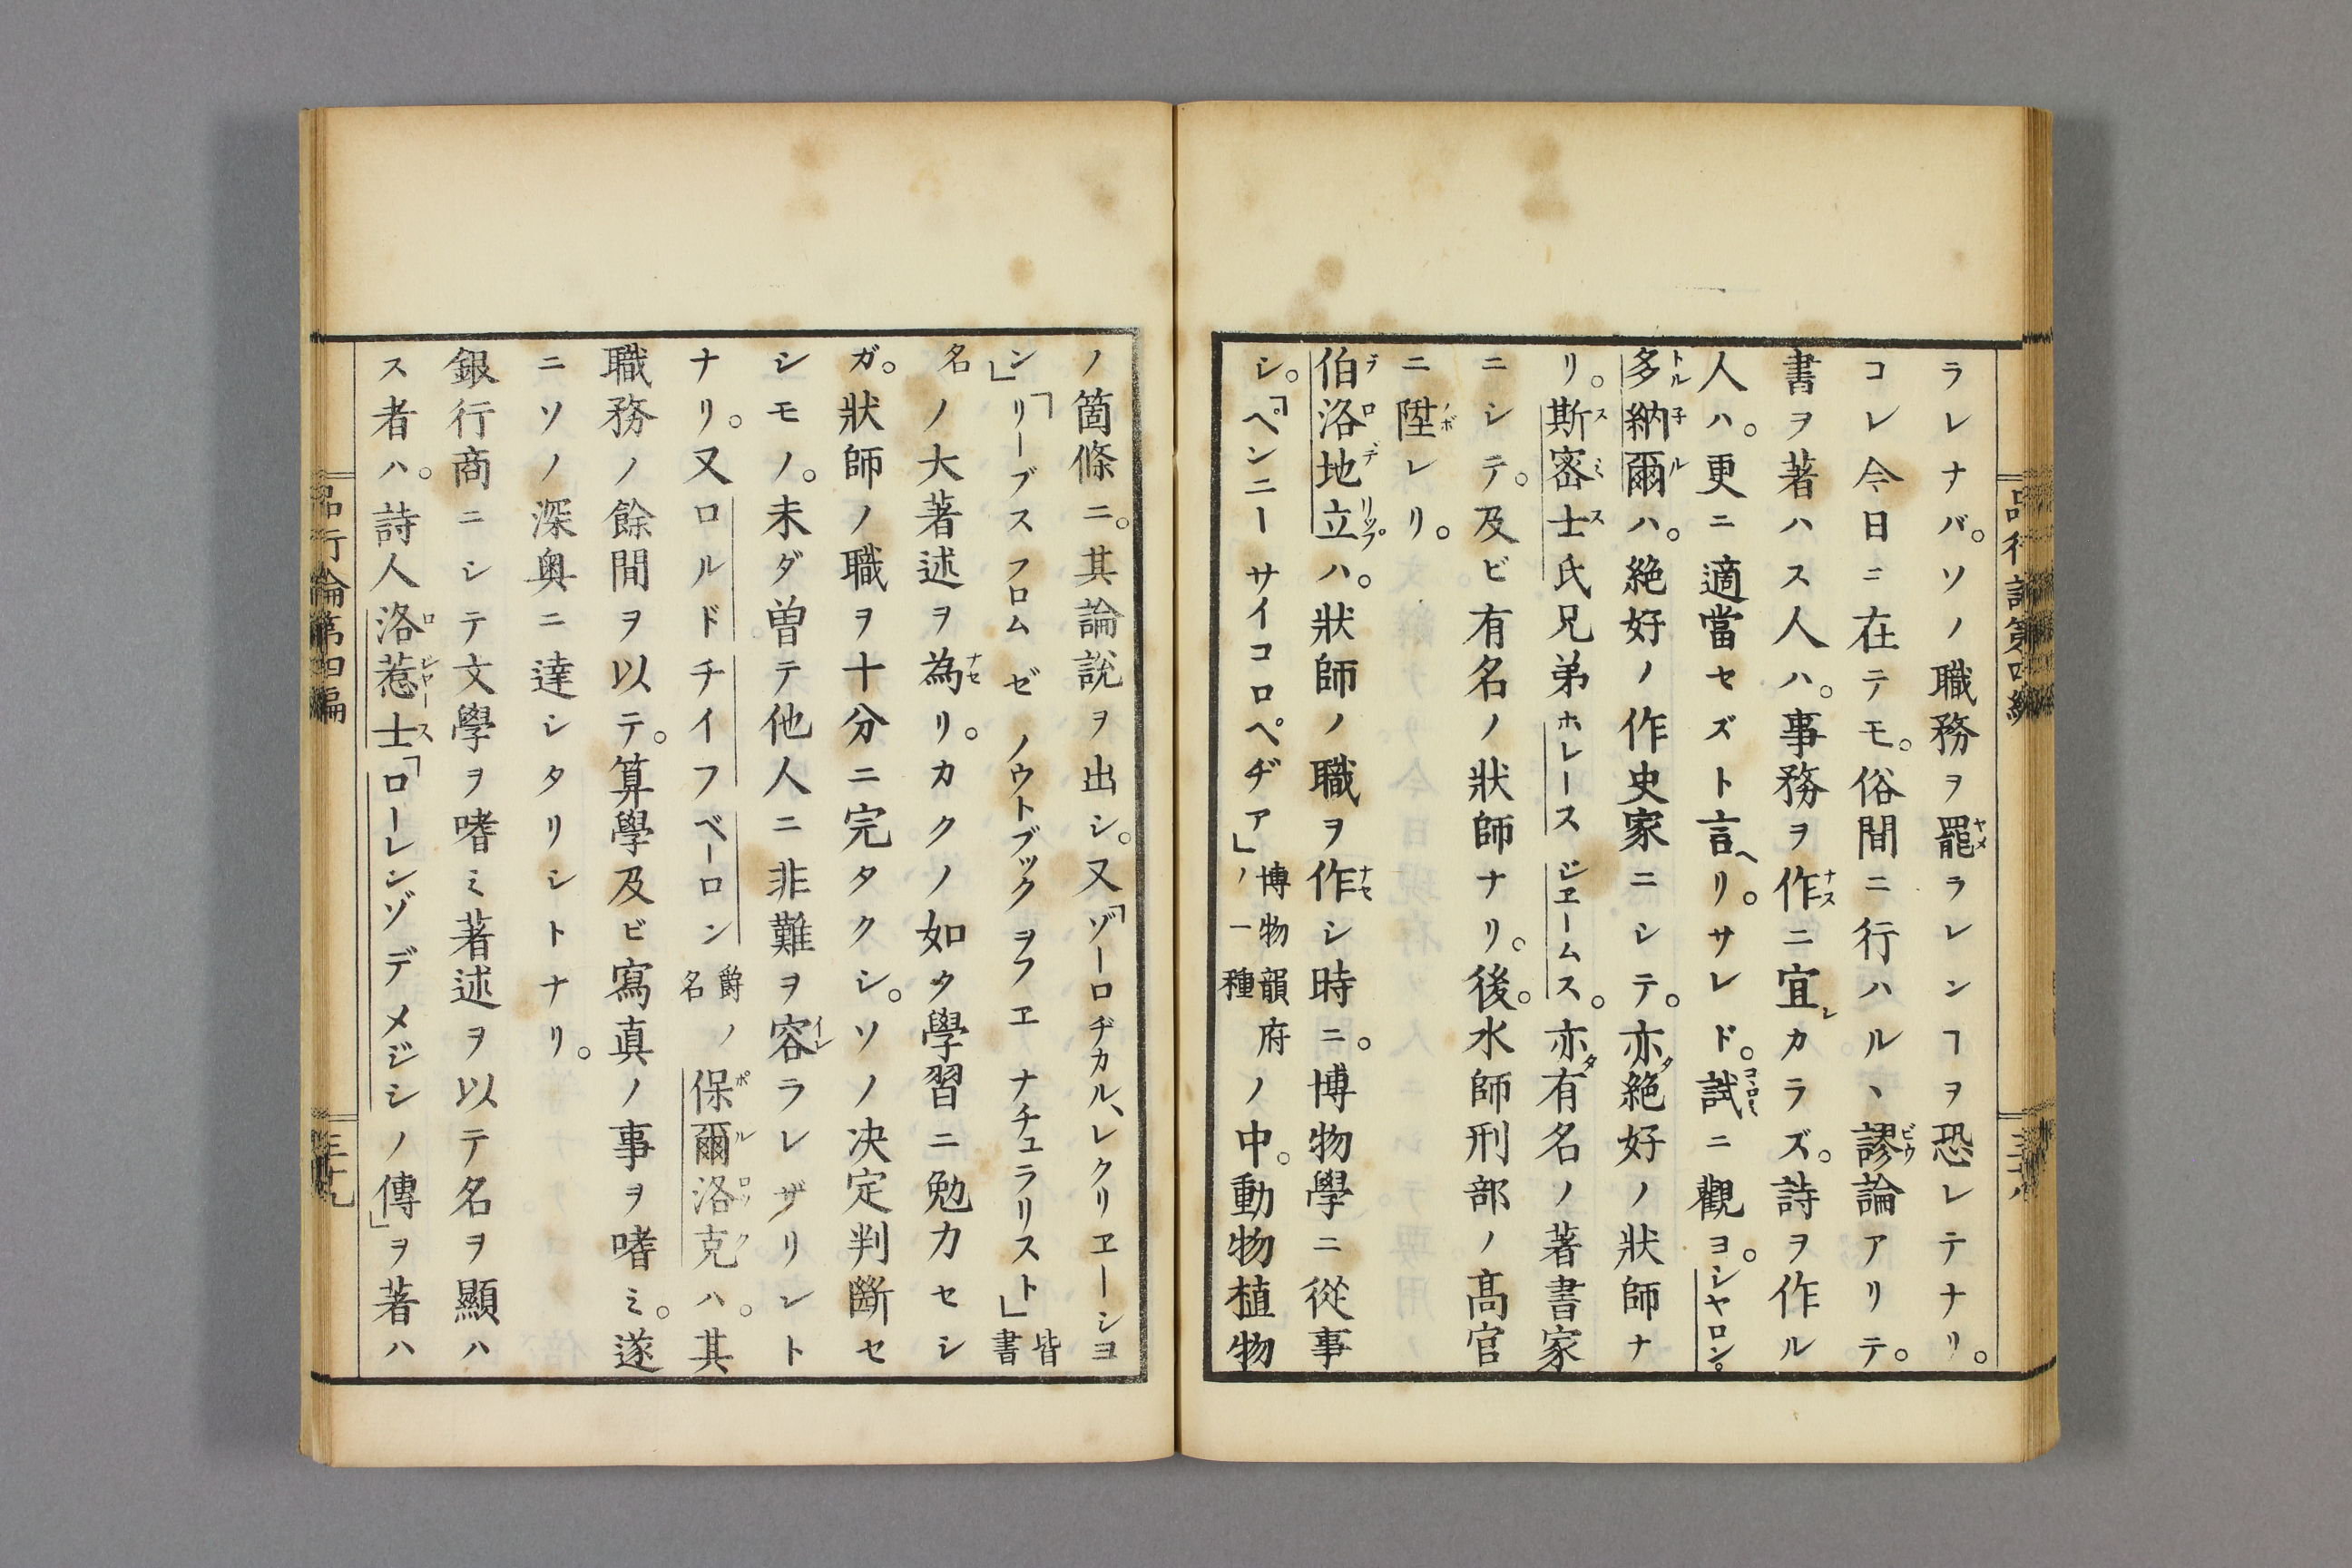 品行論第四編
三十八
ラレナバ。ソノ職務ヲ罷ラレンヿヲ恐レテナリ。
コレ今日ニ在テモ。俗間ニ行ハル、謬論アリテ。
書ヲ著ハス人ハ。事務ヲ作ニ宜カラズ。詩ヲ作ル
人ハ。更ニ適當セズト言ヘリ。サレド。試ニ觀ヨ。シヤロン。
多納爾ハ。絶好ノ作史家ニシテ。亦タ絶好ノ狀師ナ
リ。斯密士氏兄弟ホレース ジエームス。亦タ有名ノ著書家
ニシテ。及ビ有名ノ狀師ナリ。後。水師刑部ノ髙官
ニ陞レリ。
伯洛地立ハ。狀師ノ職ヲ作シ時ニ。博物學ニ從事
シ。「ペンニーサイコロペヂア」博物韻府ノ一種ノ中。動物植物
ノ箇條ニ。其論説ヲ出シ。又「ゾーロヂカル、レクリエーシヨ
ン」「リーブス フロム ゼ ノウトブック ヲフ エ ナチュラリスト」皆書
名ノ大著述ヲ為リ。カクノ如ク學習ニ勉力セシ
ガ。狀師ノ職ヲ十分ニ完タクシ。ソノ决定判斷セ
シモノ。未ダ曽テ他人ニ非難ヲ容ラレザリシト
ナリ。又ロルドチイフベーロン爵名ノ保爾洛克ハ。其
職務ノ餘間ヲ以テ。算學及ビ寫真ノ事ヲ嗜ミ。遂
ニソノ深奥ニ達シタリシトナリ。
銀行商ニシテ文學ヲ嗜ミ著述ヲ以テ名ヲ顯ハ
ス者ハ。詩人洛惹士「ローレンゾデメジシノ傳」ヲ著ハ
品行論第四編
三十九